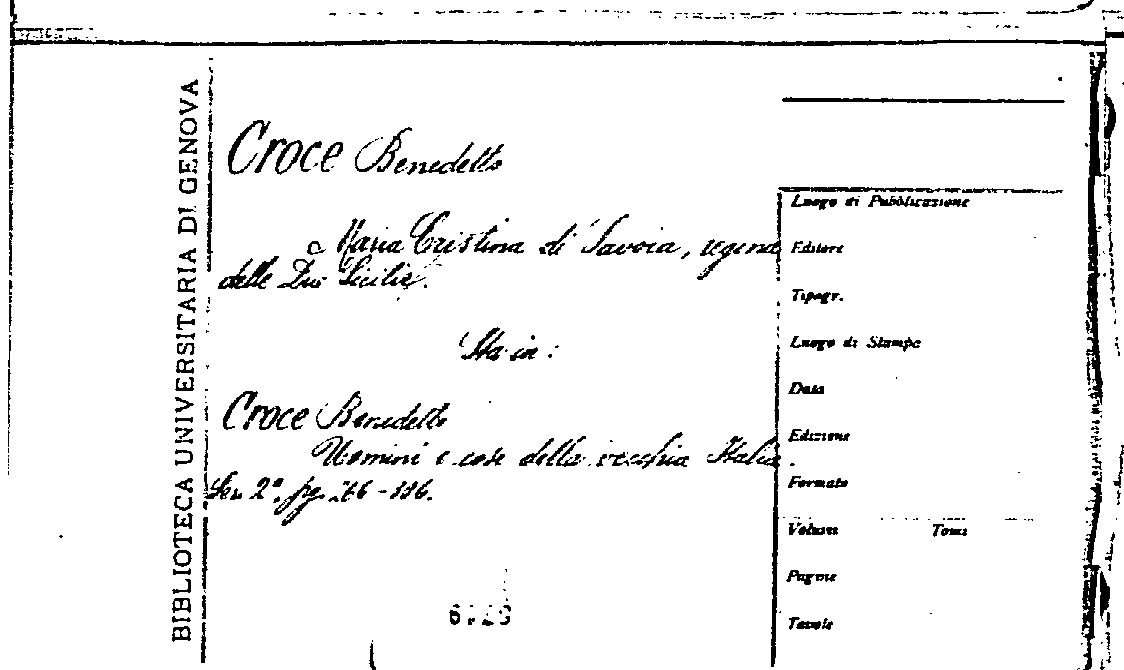 BIBLIOTECA UNIVERSITARIA DI GENOVA
Croce Benedetto
Maria Cristina di Savoia, regina
delle Due Sicilie.
Sta in:
Croce Benedetto
Uomini e cose della vecchia Italia.
Ser. 2ª, pg.
Luogo di Pubblicazione
Editore
Tipogr.
Luogo di Stampa
Data
Edizione
Formato
Volumi Tomi
Pagine
Tavole